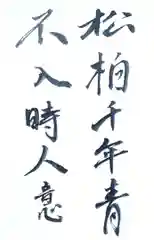 松柏千年青
不入時人意